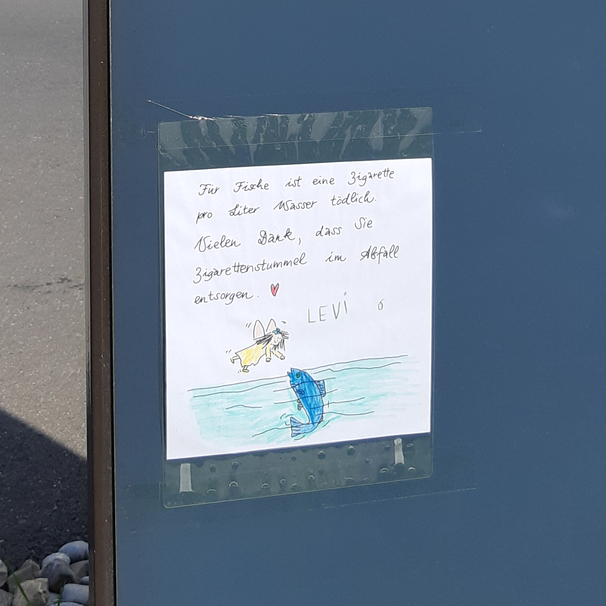 Für Fische ist eine Zigarette
pro Liter Wasser tödlich.
Vielen Dank, dass Sie
Zigarettenstummel im Abfall
entsorgen.
LEVI 6